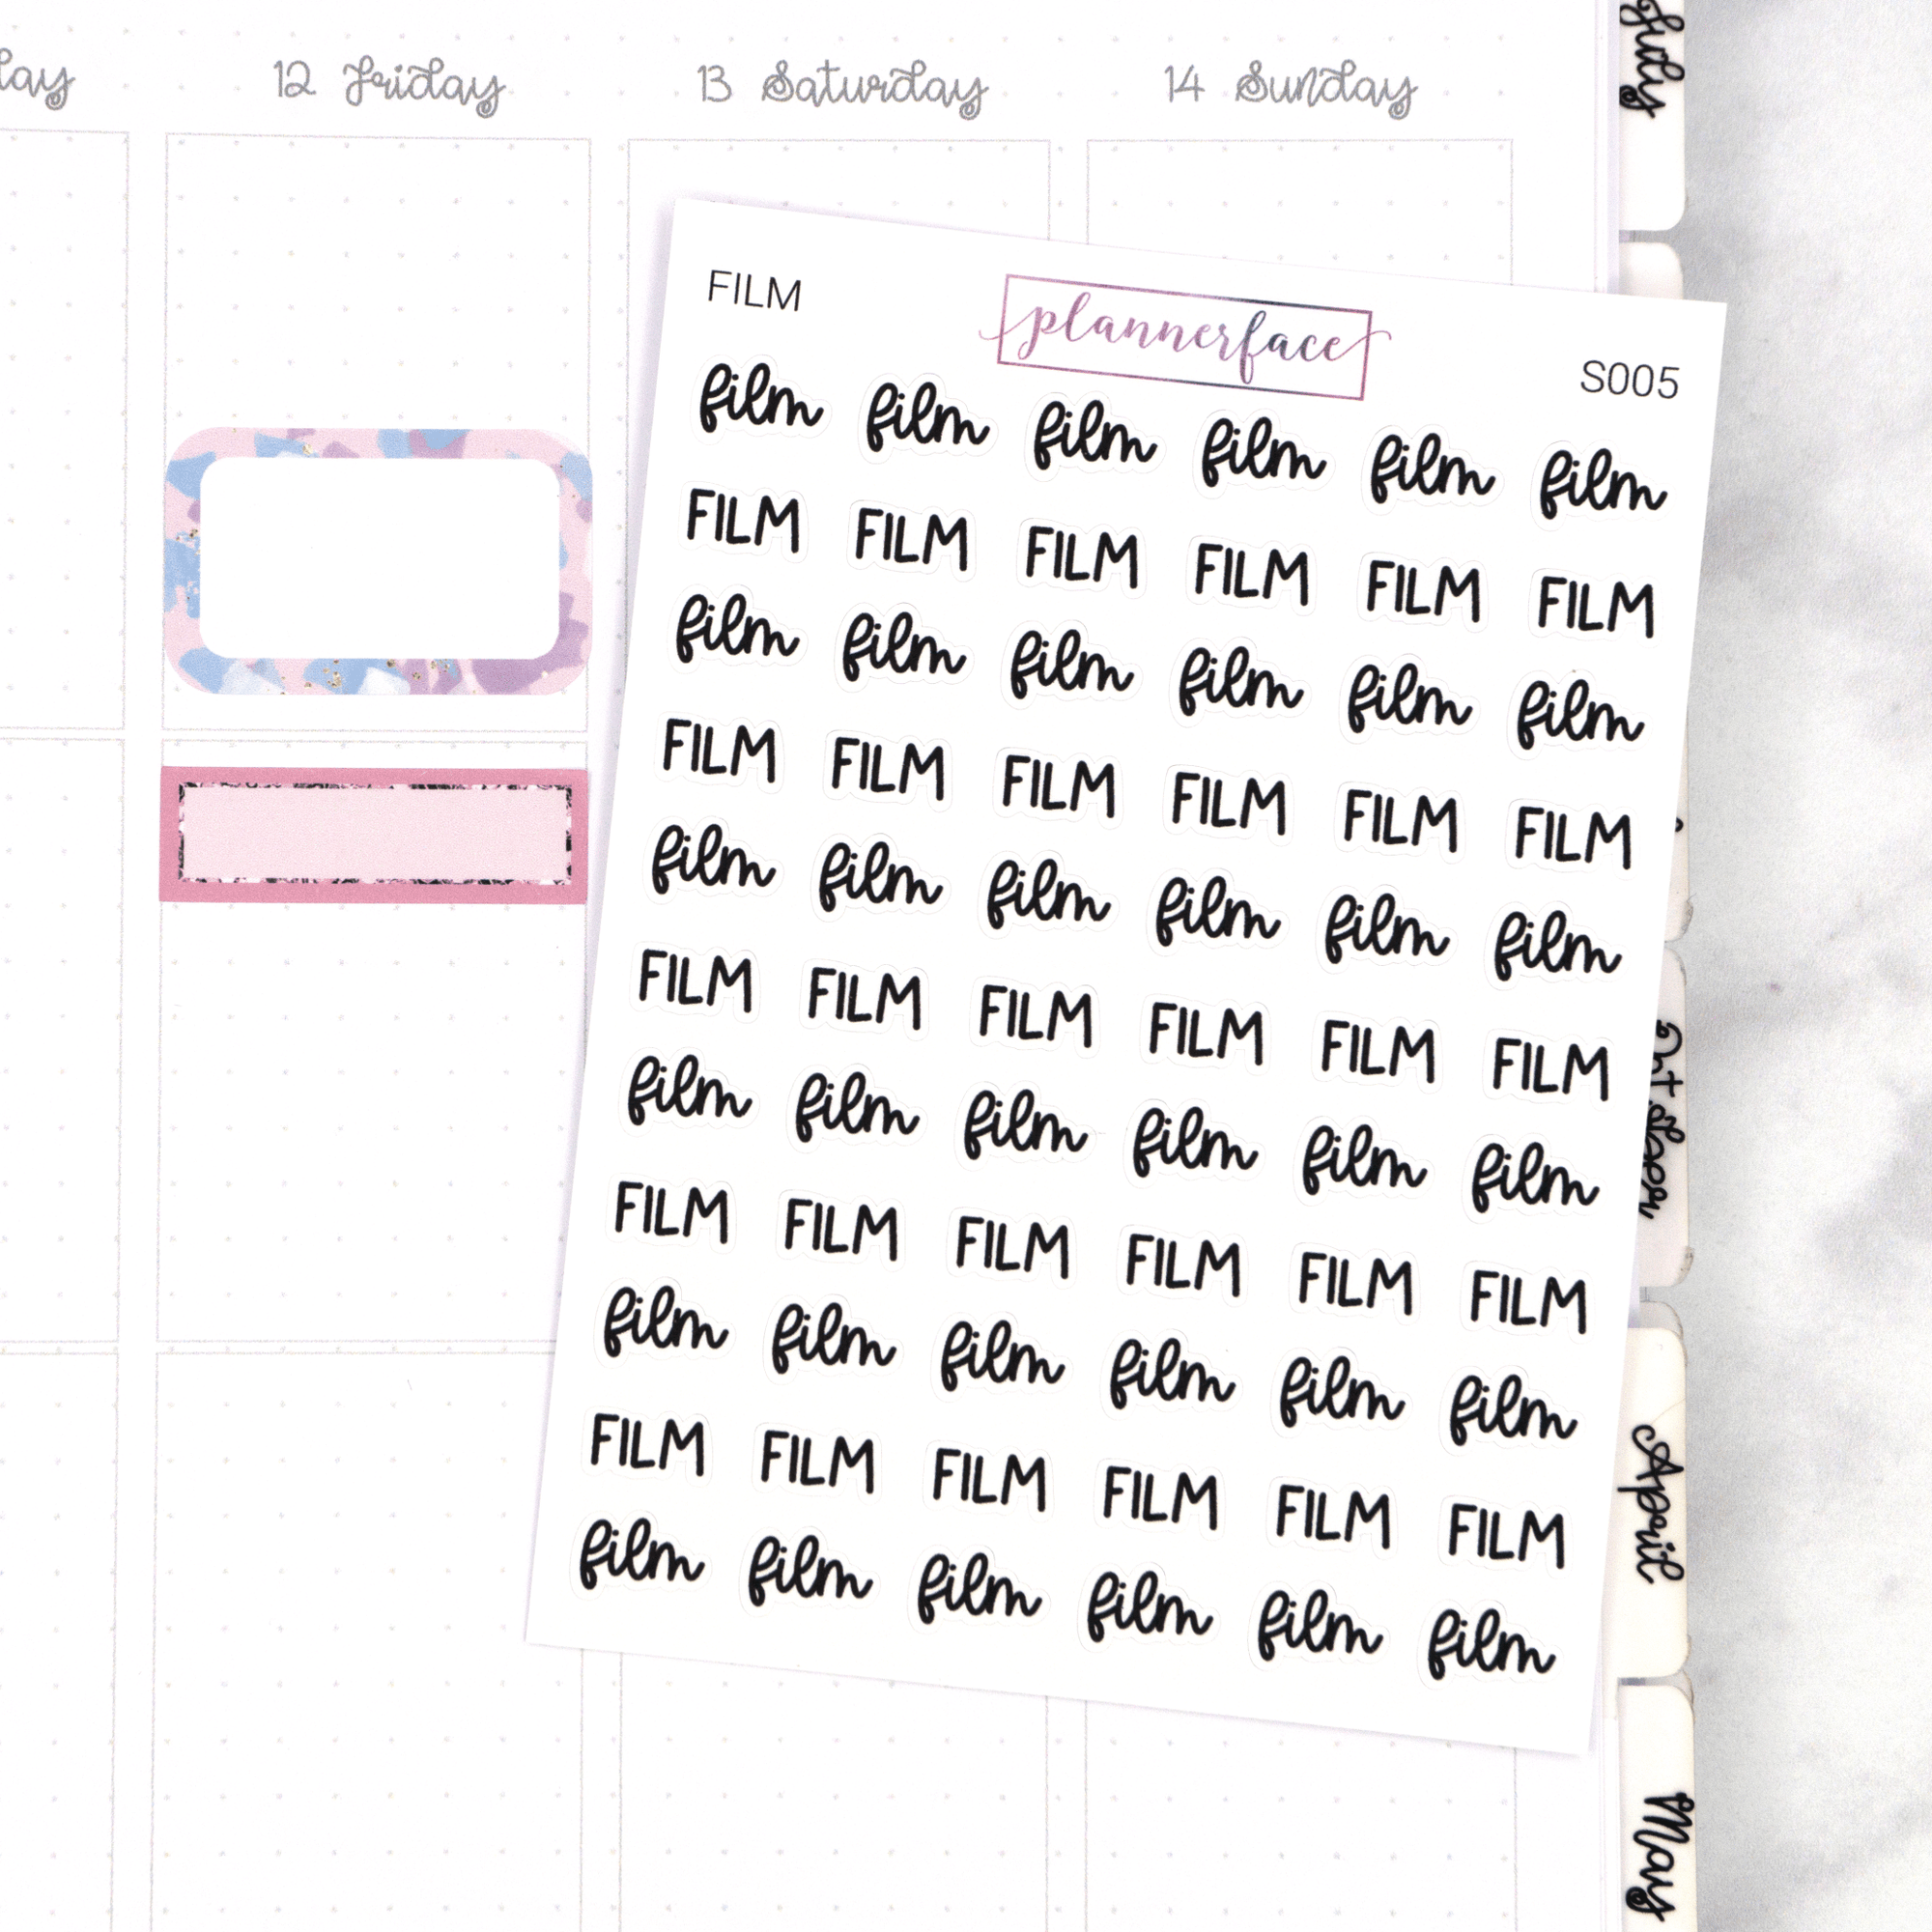 12 Friday
13 Saturday
14 Sunday
July
FILM
plannerface
S005
film film film film film film
FILM FILM FILM FILM FILM FILM
film film film film film film
FILM FILM FILM FILM FILM FILM
film film film film film film
FILM FILM FILM FILM FILM FILM
film film film film film film
FILM FILM FILM FILM FILM FILM
film film film film film film
FILM FILM FILM FILM FILM FILM
film film film film film film
April
May